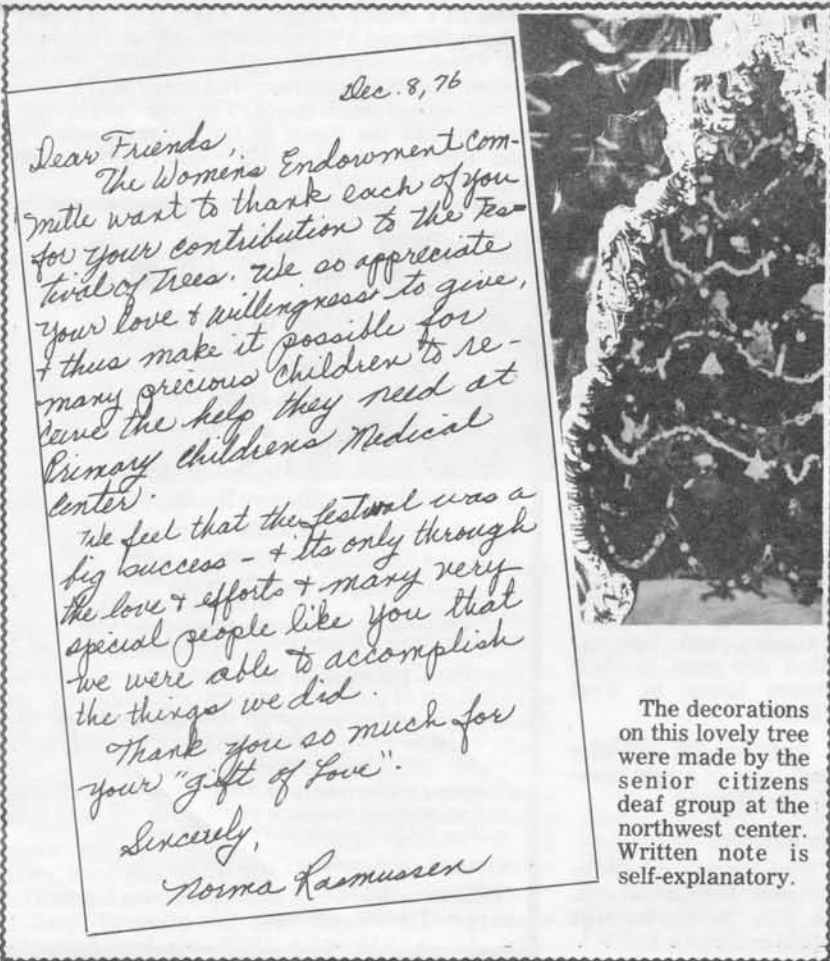 Dec. 8, 76
Dear Friends,
The Womens Endowment com-
mitte want to thank each of you
for your contribution to the Fes=
tival of Trees. We so appreciate
your love & willingness to give,
& thus make it possible for
many precious children to re-
ceive the help they need at
Primary Childrens Medical
Center.
We feel that the festival was a
big success - & its only through
the love & efforts & many very
special people like you that
we were able to accomplish
the things we did.
Thank you so much for
your "gift of Love".
Sincerely,
Norma Rasmussen
The decorations
on this lovely tree
were made by the
senior citizens
deaf group at the
northwest center.
Written note is
self-explanatory.